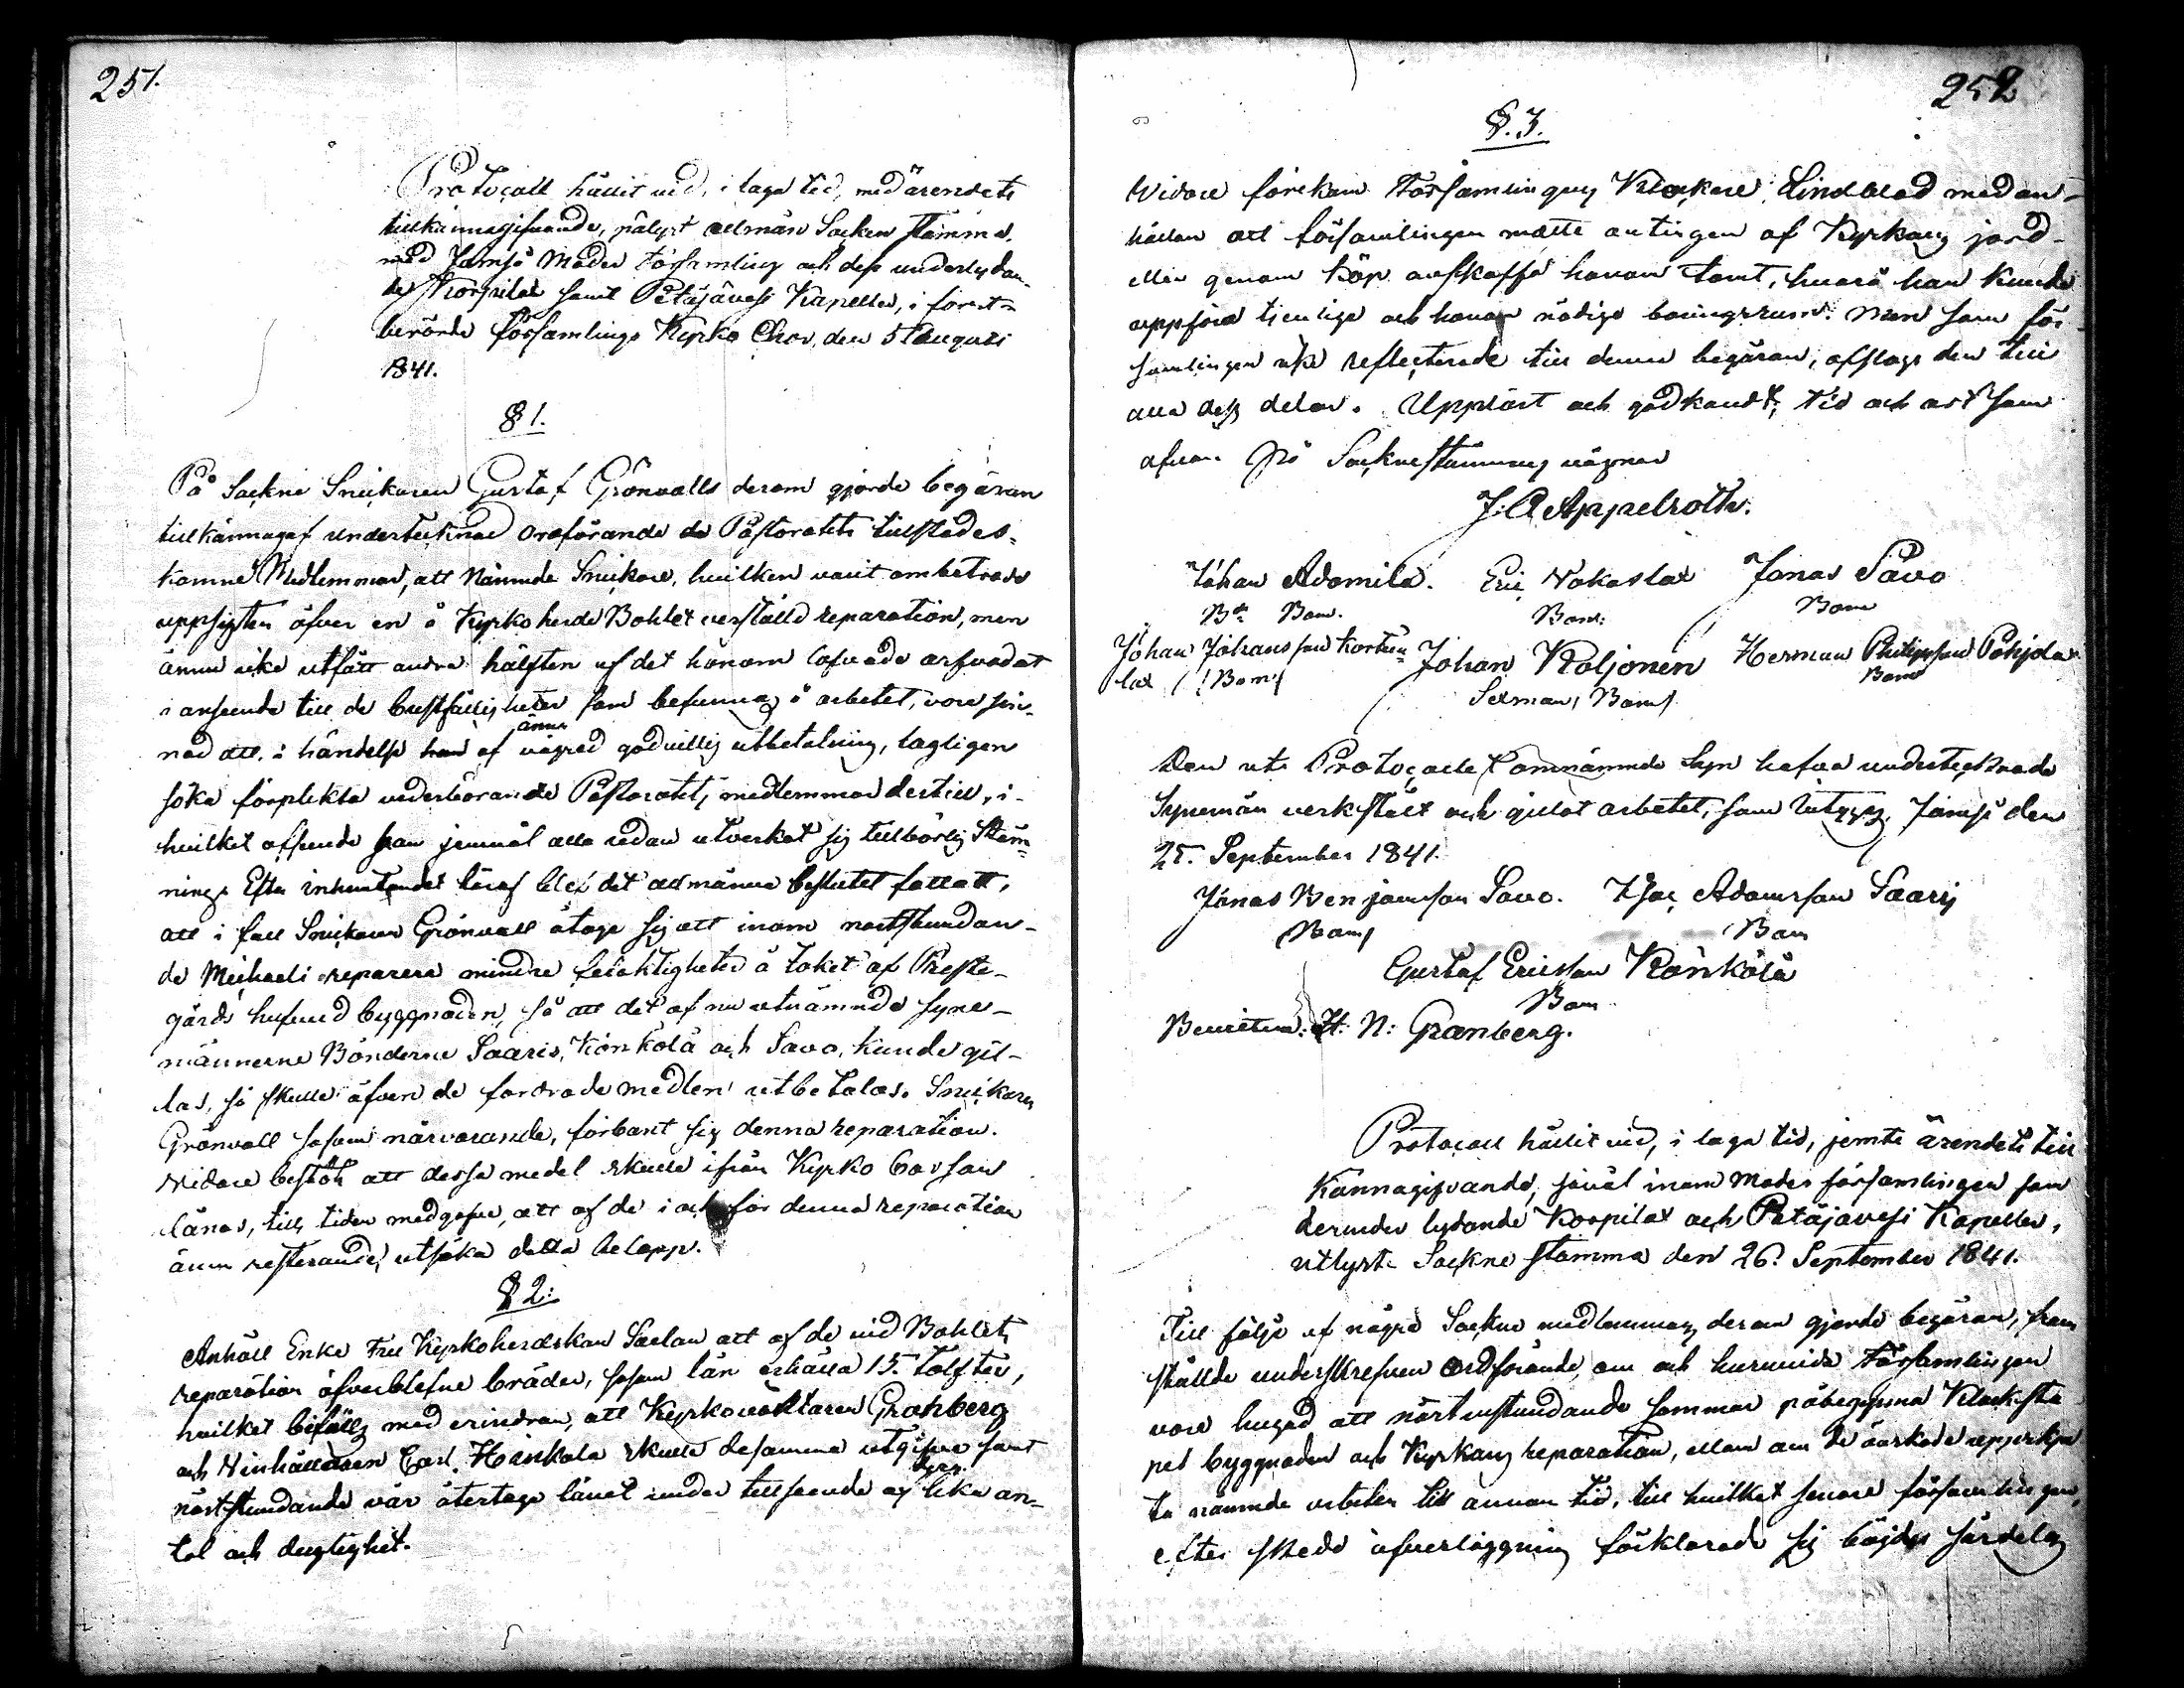 251.
Protocoll hållit vid, i laga tid, med ärendets
tillkännagifvande, pålyst allmän Socken stämma
med Jämsä Moder församling och dess underlydan-
de Korpilax samt Petäjävesi Kapeller, i först-
berörde församlings Kyrko Chor, den 5 Augusti
1841.
§ 1.
På Sockne Snickaren Gustaf Grönvalls derom gjorde begäran
tillkännagaf undertecknad Ordförande de Pastoratets tillstädes-
komne Medlemmar, att Nämnde Snickare, hvilken varit ombetrodd
uppsigten öfver en å Kyrkoherde Bohlet verställd reparation, men
ännu icke utfått andra hälften af det honom lofvade arfvodet
i anseende till de bristfälligheter som befunnos i arbetet, vore sin-
nad att i händelse af ännu vägrad godvillig utbetalning, lagligen
söka förplikta vederbörande Pastoratets medlemmar dertill, i
hvilket afseende han jemväl alla redan utverkat sig tillbörlig Stäm-
ning. Efter inhemtandet häraf blef det allmänna beslutet fattatt,
att i fall Snickaren Grönvall åtoge sig att inom nästkundan-
de Michaeli reparera mindre felaktigheter å taket af Preste-
gårds hufvud byggnaden, så att det af nu utnämnde syne-
männerne Bönderne Saaris, Könkölä och Savo, kunde gil-
las, så skulle äfven de fordrade medlen utbetalas. Snickaren
Grönvall såsom närvarande, förbant sig denna reparation.
Vidare bestöts att dessa medel skulle ifrån Kyrko Cassan
lånas, tills tiden medgofve, att af de i och för denna reparation
ännu resterande, utsöka detta belopp.
§ 2:
Anhöll Enke Fru Kyrkoherdskan Saelan att af de vid Bohlets
reparation öfverblefne bräder, såsom lån erhålla 15. tolfter,
hvilket bifölls med erindran, att Kyrkovärdaren Granberg
och Vinhållaren Carl Hinkala skulle desamma utgifva samt
nästkundande vår återtaga lånet under tillseende af lika an-
tal och dugtighet.
252
§. 3.
Vidare förekom Församlingens Klockare Lindblad med an-
hållan att församlingen måtte antingen af Kyrkans jord
eller genom köp anskaffa honom tomt, hvarå han kunde
uppföra tjenliga och honom nödiga boningsrum. Men som för-
samlingen icke reflecterade till denna begäran, afslogs den till
alla dess delar. Uppläst och godkändt, tid och ort som
ofvan. På Sockne stämmans vägnar
J. A Appelroth.
Johan Adamila. Eric Nokaslax Jonas Savo
Bde Bom. Bom: Bom
Johan Johansson Korkia- Johan Koljonen Herman Philipsson Pohjola
lax (Bom) Sexman, Bom) Bom
Den uti Protocollet omnämnde Syn hafva undertecknade
Synemän verkstält och gillat arbetet, som intygas. Jämsä den
25. September 1841.
Jonas Benjaminson Savo. Isac Adamsson Saarij
(Bom) (Bom
Gustaf Ericsson Könkölä
Bom
Bevittna: H. N: Granberg.
Protocoll hållit vid, i laga tid, jemte ärendets till
Kännagifvande, såväl inom Moder församlingen som
derunder lydande Korpilax och Petäjävesi Kapeller,
utlyst Sockne stämma den 26. September 1841.
Till följe af några Sockne medlemmars derom gjorde begäran, fram
ställde underskrefven Ordförande, om och huruvida Församlingen
vore hugad att nästinstundande sommar påbegynna Klocksta
pel byggnaden och Kyrkans reparation, ellom om de åsskade uppskju
ta nämnde arbeten till annan tid, till hvilket senare församlingen,
efter skedd öfverläggning förklarade sig böjde särdeles